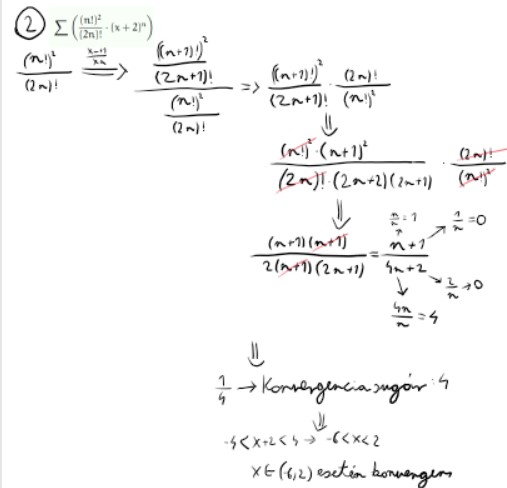 ② ∑ ( (n!)² / (2n)! · (x + 2)ⁿ )
(n!)² / (2n)! ⟹ (xₙ₊₁ / xₙ) ((n+1)!)² / (2n+1)! / (n!)² / (2n)! => ((n+1)!)² / (2n+1)! · (2n)! / (n!)²
⇓
(n!)² · (n+1)² / (2n)! · (2n+2)(2n+1) · (2n)! / (n!)²
⇓
n/n = 1
1/n = 0
(n+1)(n+1) / 2(n+1)(2n+1) = n+1 / 4n+2
2/n → 0
4n/n = 4
⇓
1/4 → Konvergencia sugár : 4
⇓
-4 < x+2 < 4 → -6 < x < 2
x ∈ (-6, 2) esetén konvergens